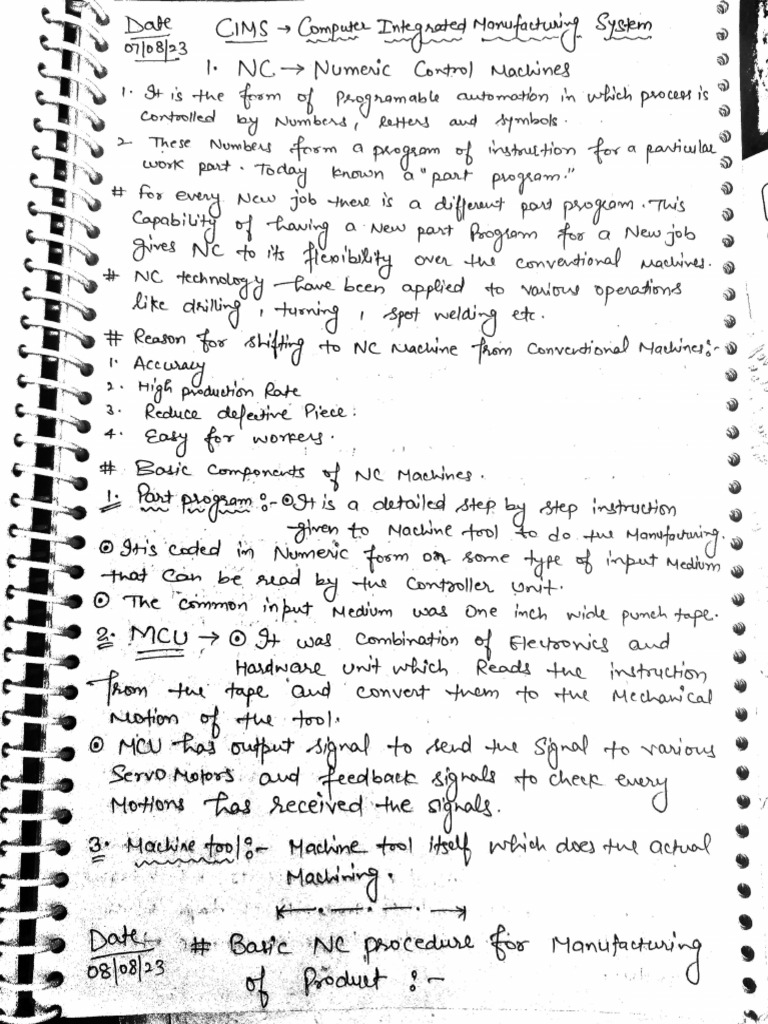 Date CIMS → Computer Integrated Manufacturing System
07/08/23
1. NC → Numeric Control Machines
1. It is the form of Programable automation in which process is
controlled by Numbers, letters and symbols.
2 These Numbers form a program of instruction for a particular
work part. Today known a "part program."
# for every New job there is a different part program. This
Capability of having a New part Program for a New job
gives NC to its flexibility over the conventional Machines.
# NC technology have been applied to various operations
like drilling, turning, spot welding etc.
# Reason for shifting to NC Machine from Conventional Machines:-
1. Accuracy
2. High production Rate
3. Reduce defective Piece.
4. Easy for workers.
# Basic Components of NC Machines.
1. Part program:- ⊙ It is a detailed step by step instruction
given to Machine tool to do the Manufacturing.
⊙ It is coded in Numeric form on some type of input Medium
that can be read by the Controller unit.
⊙ The common input Medium was One inch wide punch tape.
2. MCU → ⊙ It was Combination of Electronics and
Hardware unit which Reads the instruction
from the tape and convert them to the Mechanical
Motion of the tool.
⊙ MCU has output signal to send the Signal to various
Servo Motors and feedback signals to check every
Motions has received the signals.
3. Machine tool:- Machine tool itself which does the actual
Machining.
Date # Basic NC procedure for Manufacturing
08/08/23 of Product :-